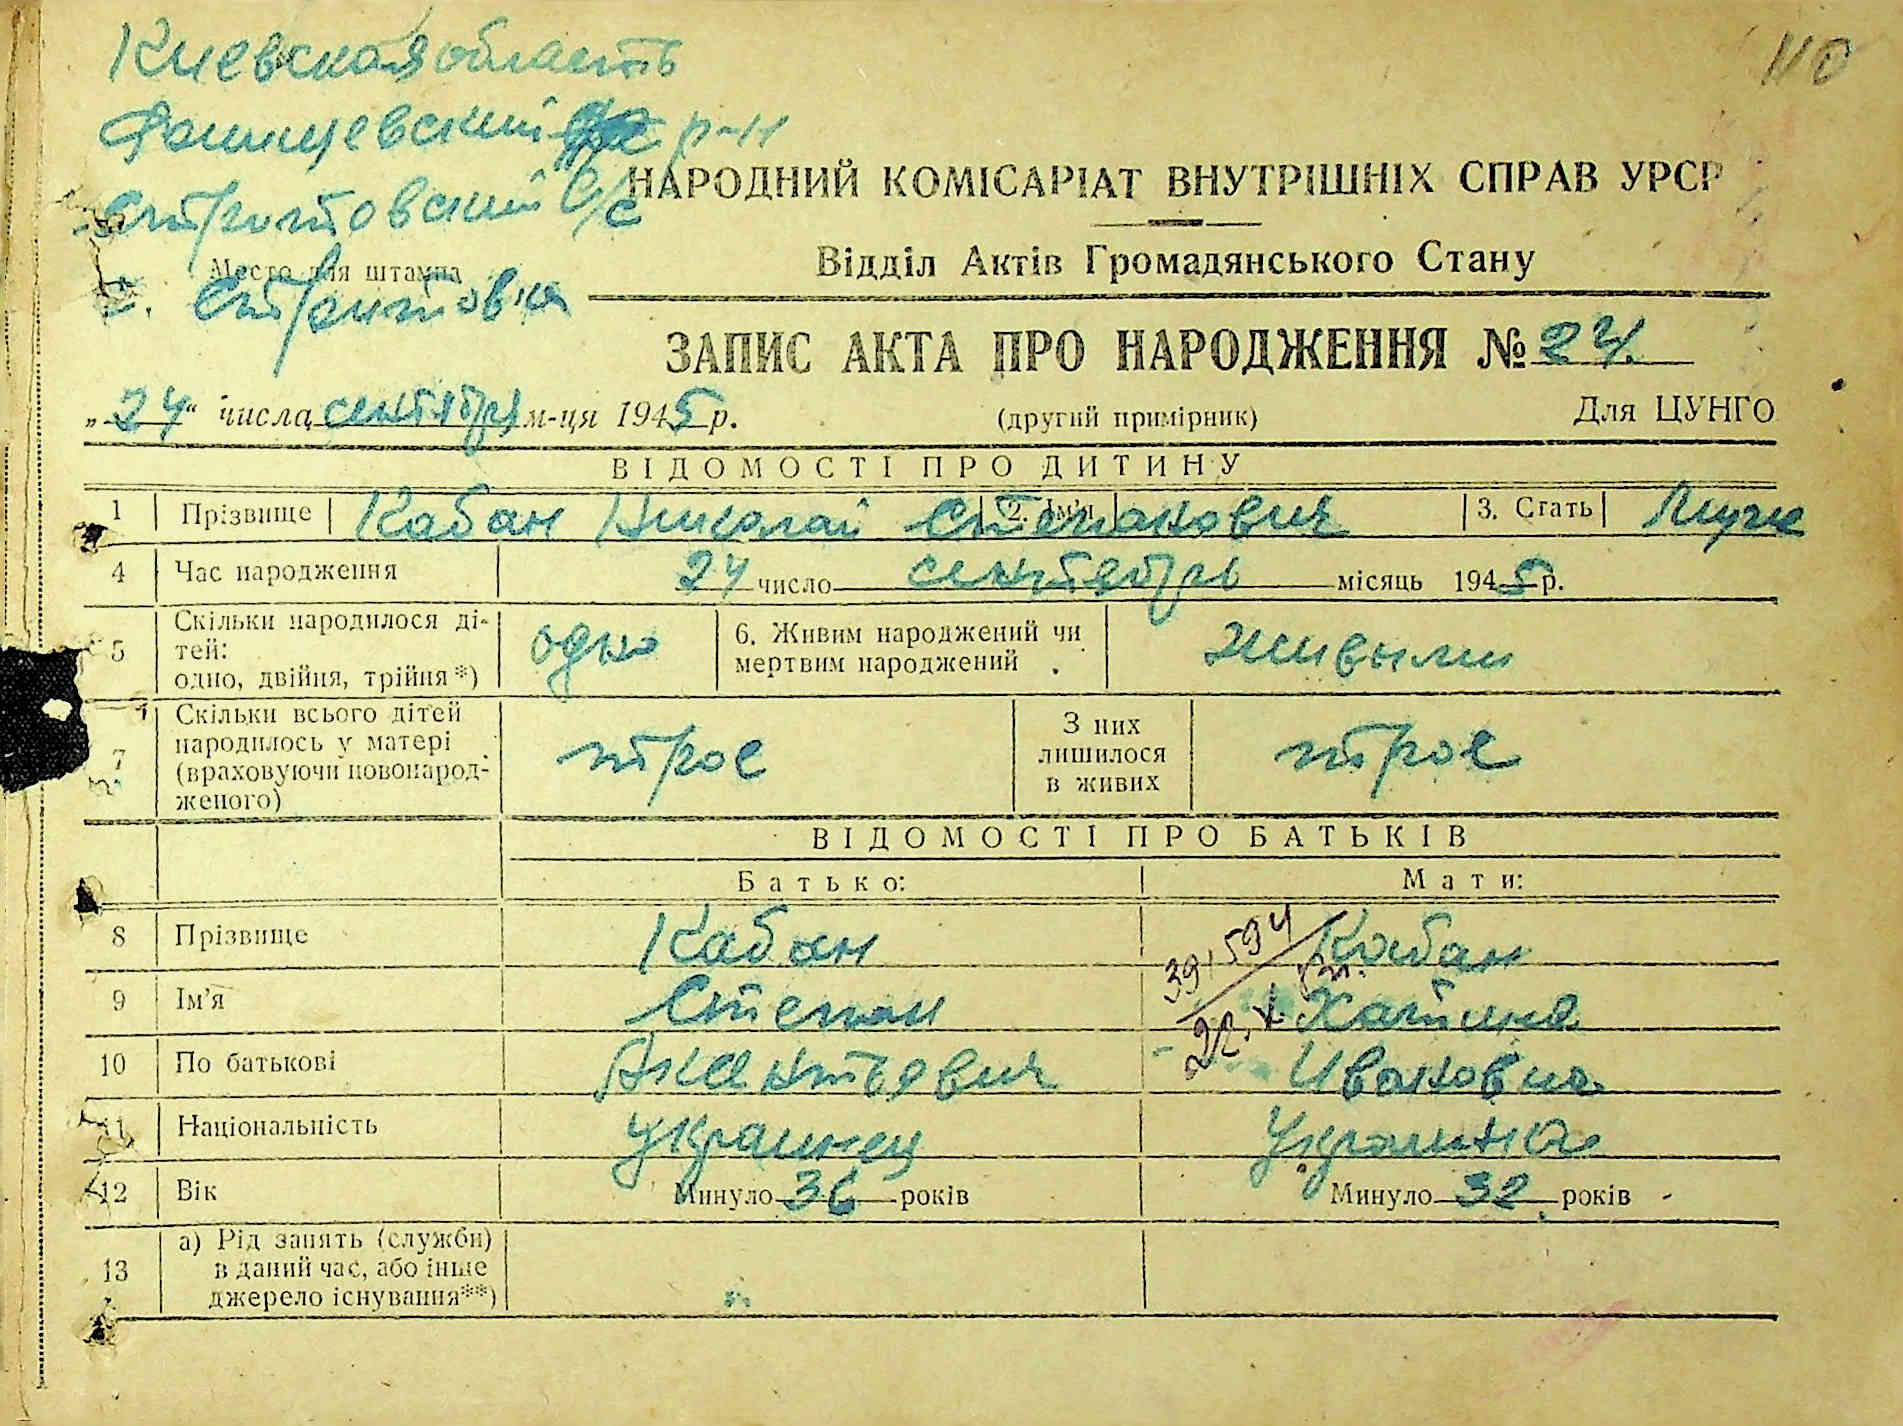 110
Киевская область
Фастовский р-н
С/с
Место для штампа
НАРОДНИЙ КОМІСАРІАТ ВНУТРІШНІХ СПРАВ УРСР
Відділ Актів Громадянського Стану
ЗАПИС АКТА ПРО НАРОДЖЕННЯ № 24.
„24“ числа сентября м-ця 1945 р. (другий примірник) Для ЦУНГО
ВІДОМОСТІ ПРО ДИТИНУ
1 Прізвище Кабан Николай Степанович 2. Ім'я 3. Стать Муж
4 Час народження 24 число сентябрь місяць 1945 р.
5 Скільки народилося ді-
тей:
одно, двійня, трійня*) одно 6. Живим народжений чи
мертвим народжений живым
7 Скільки всього дітей
народилось у матері
(враховуючи новонарод-
женого) трое З них
лишилося
в живих трое
ВІДОМОСТІ ПРО БАТЬКІВ
Батько: Мати:
8 Прізвище Кабан Кабан
9 Ім'я Степан
10 По батькові Ивановна
11 Національність украинец Украинка
12 Вік Минуло 36 років Минуло 32 років
13 а) Рід занять (служби)
в даний час, або інше
джерело існування**)